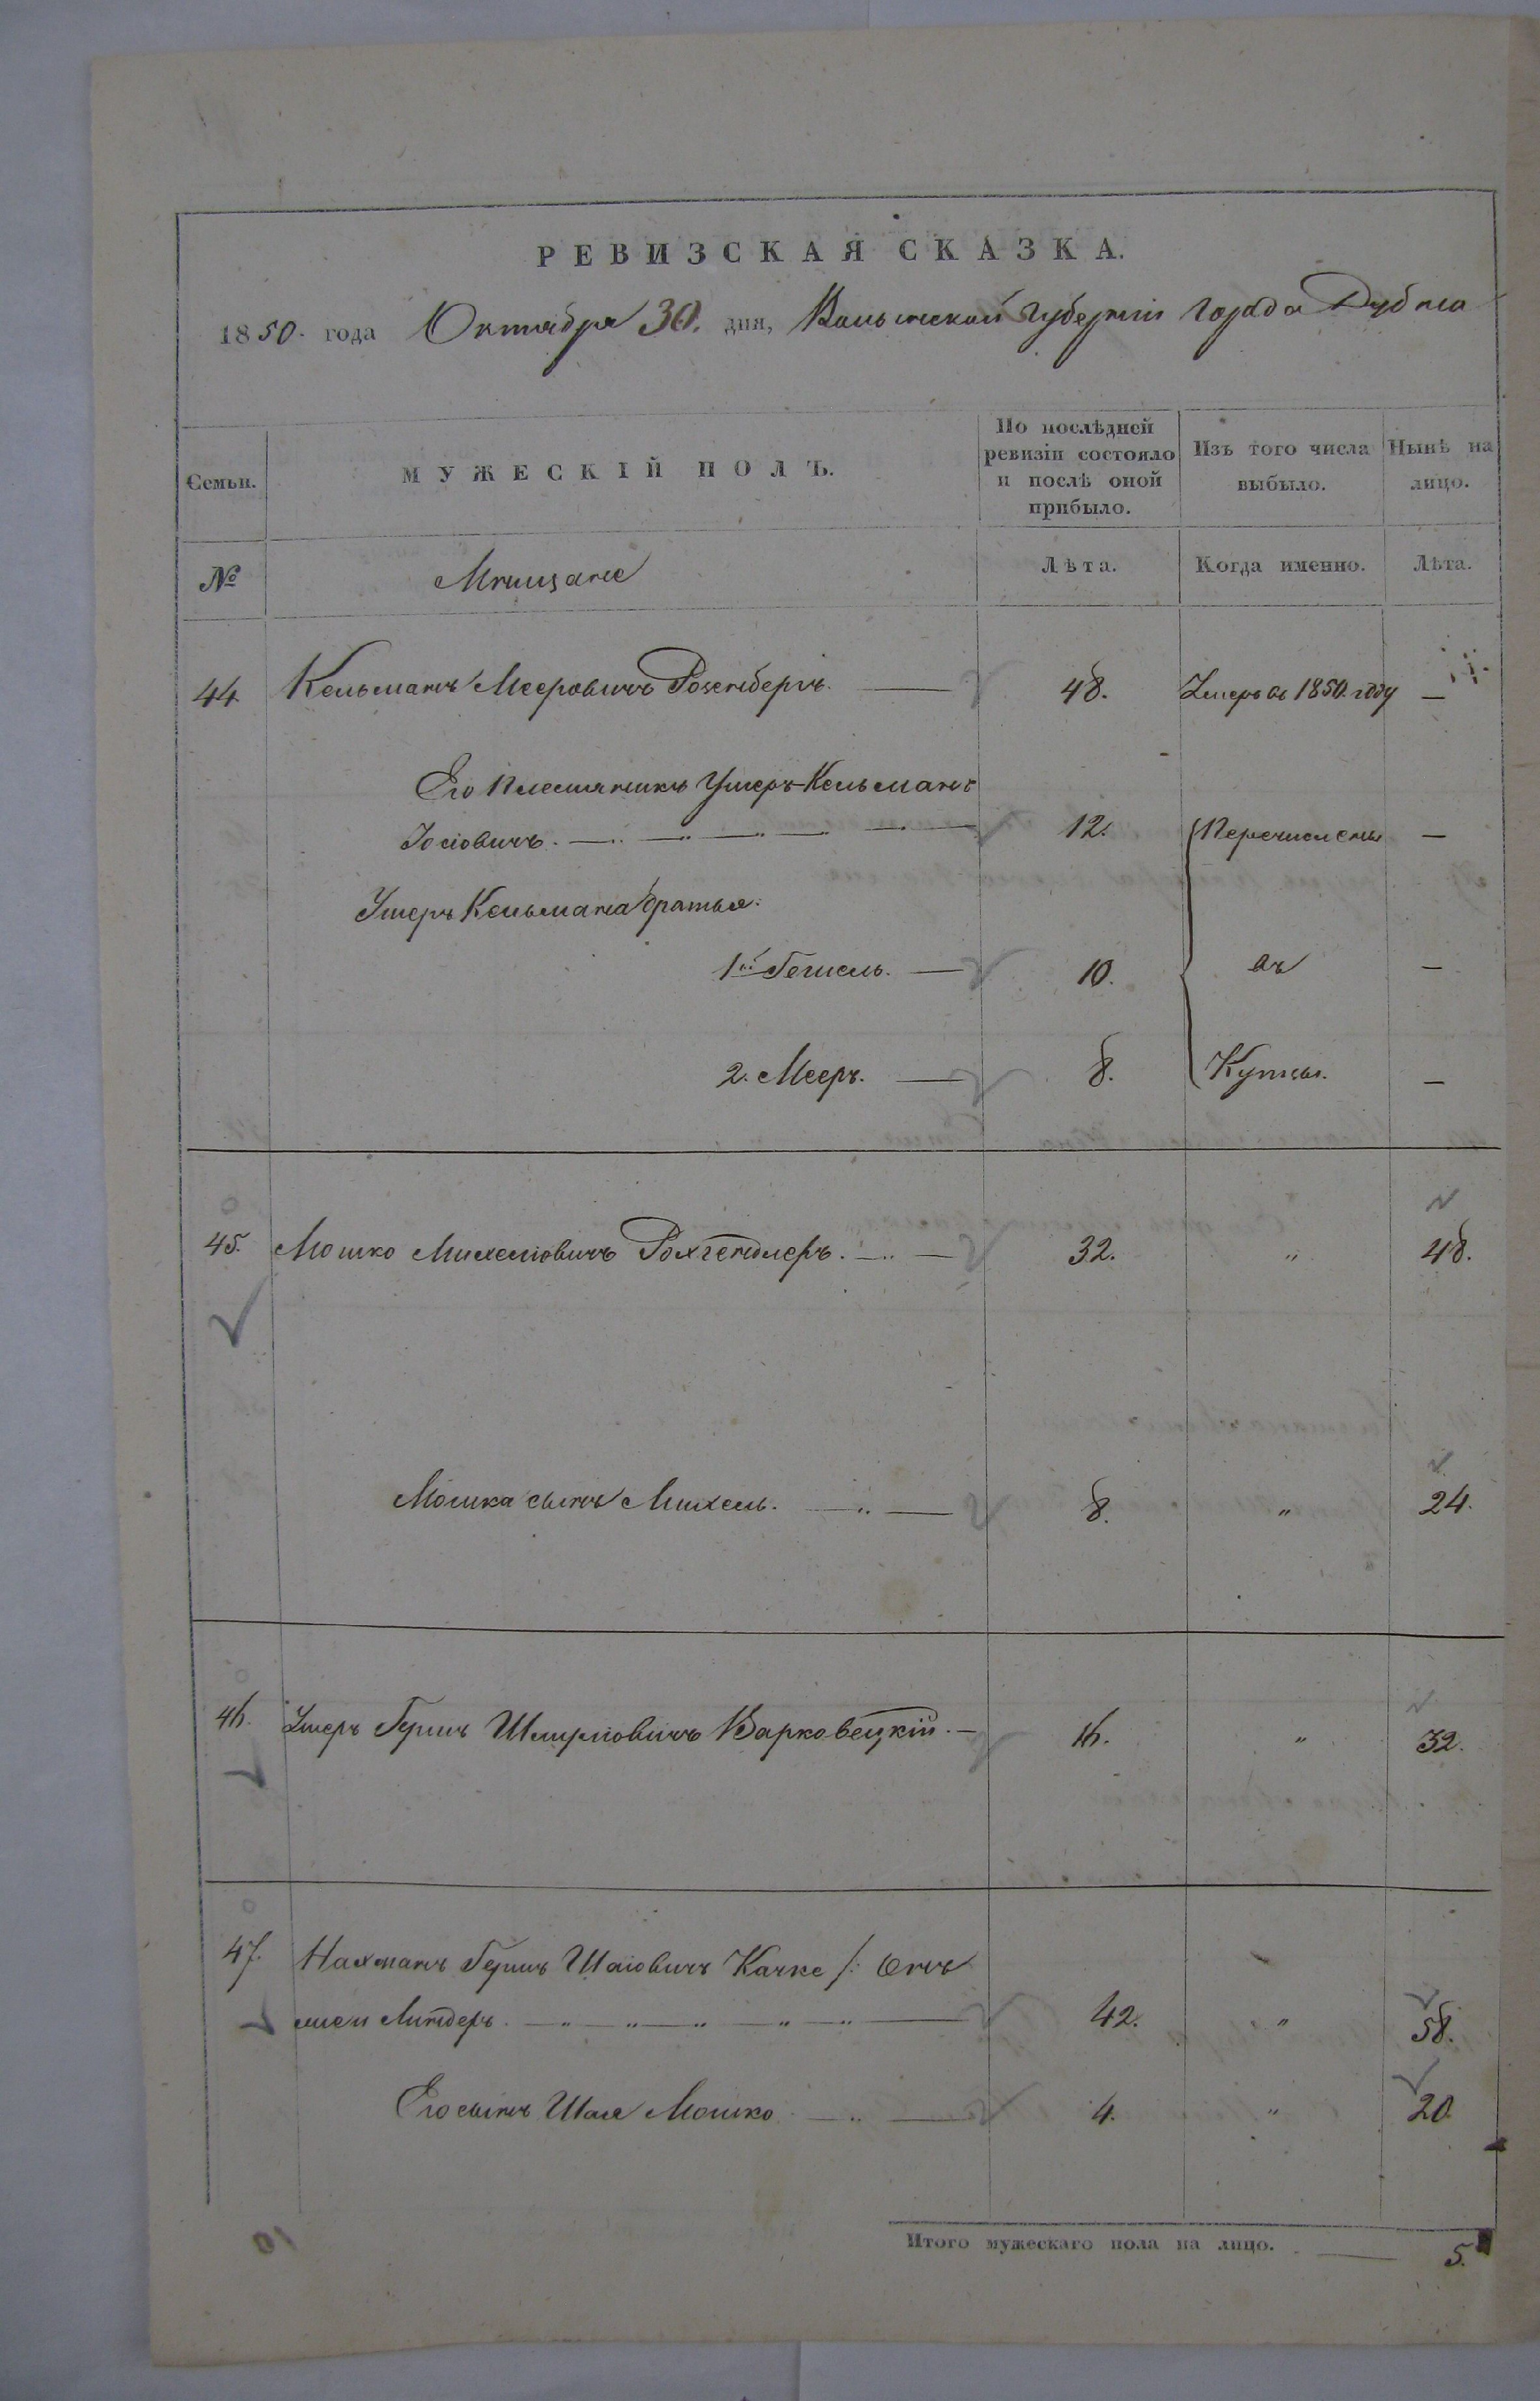 РЕВИЗСКАЯ СКАЗКА.
1850. года Октября 30. дня, Волынской Губерніи Города Дубна
Семьи.
МУЖЕСКІЙ ПОЛЪ.
По послѣдней ревизіи состояло и послѣ оной прибыло.
Изъ того числа выбыло.
Нынѣ на лицо.
№
Мѣщане
Лѣта.
Когда именно.
Лѣта.
44. Кельманъ Мееровичъ Розенбергъ. — 48. Умеръ въ 1850. году —
Его Племянникъ Умеръ-Кельманъ
Іосіовичъ. — 12. Перечислены —
Умеръ Кельмана братья:
1й Гешель. — 10. въ —
2. Мееръ. — 8. Купцы. —
45. Мошко Михеліовичъ Рохгендлеръ. — 32. " 48.
Мошка сынъ Михель. — 8. " 24.
46. Умеръ Гершъ Шмуліовичъ Варковецкій. — 16. " 32.
47. Нахманъ Гершъ Шаіовичъ Качке /: Онъ
же и Линдеръ. — 42. " 58.
Его сынъ Шая Мошко — 4. " 20.
Итого мужескаго пола на лицо. — 5.